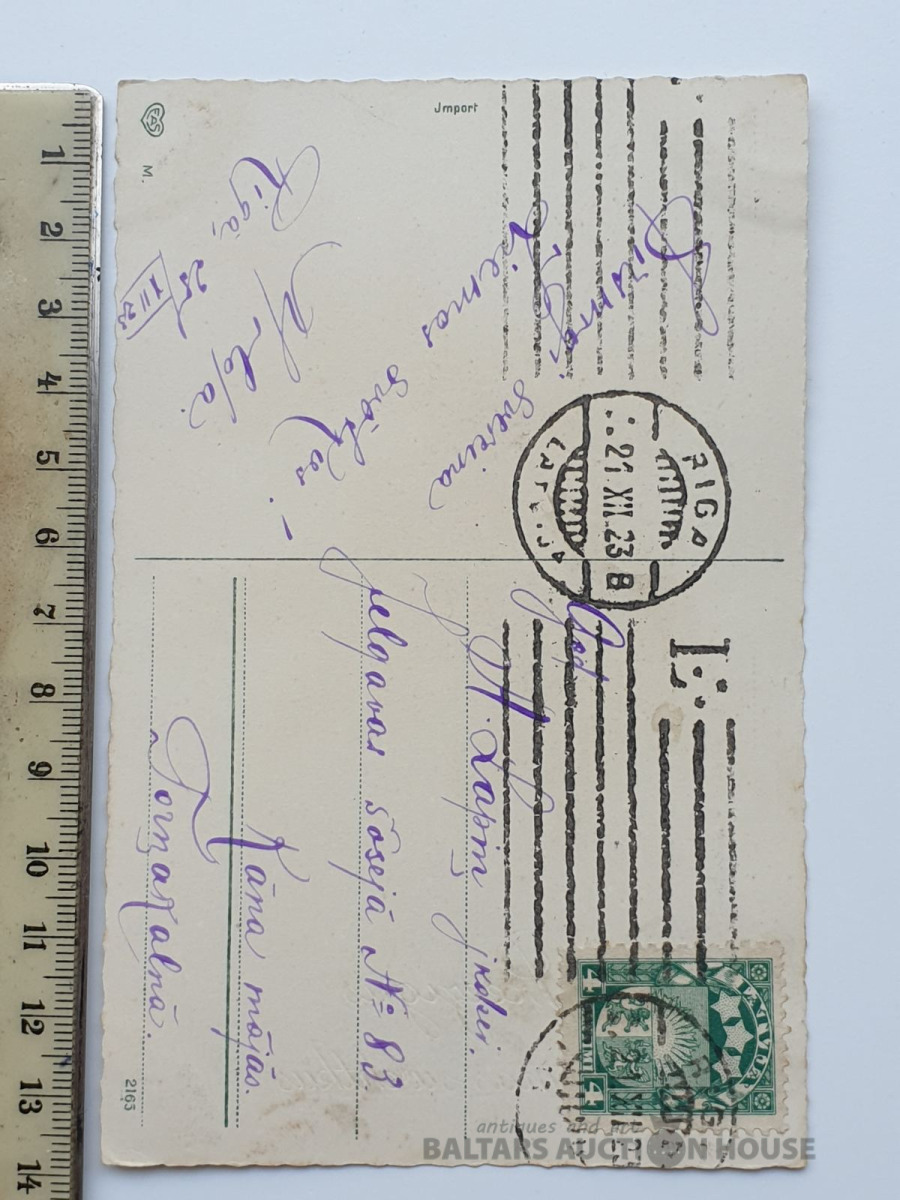 Import
EAS
M.
Ziemas
sveicina
svētkos! –
Rīgā, 25/XII 23
RIGA
21 XII. 23 8
LATVIJA
God.
A. Lapiņ jkdzei.
Jelgavas šosejā № 83
Kāna mājās.
Torņakalnā.
2163
LATVIJA
4 4
antiques and art
BALTARS AUCTION HOUSE
1
2
3
4
5
6
7
8
9
10
11
12
13
14